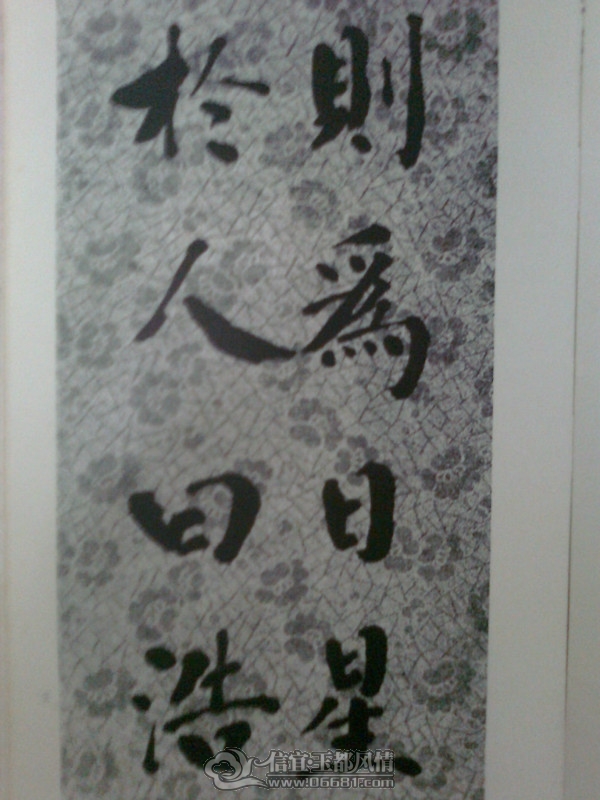 則為日星
於人曰浩
信宜·玉都风情
www.06681.com